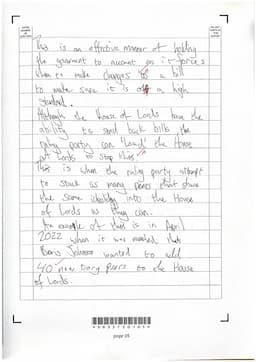 This is an effective manner of holding
the government to account as it forces
them to make changes to a bill
to make sure it is of a high
standard.
Although the House of Lords have the
ability to send back bills, the
ruling party can "load" the House
of Lords to stop this.
This is when the ruling party attempt
to stack as many peers that share
the same ideology into the House
of Lords as they can.
An example of this is in April
2022 when it was revealed that
Boris Johnson wanted to add
40 new Tory peers to the House
of Lords.
page 05